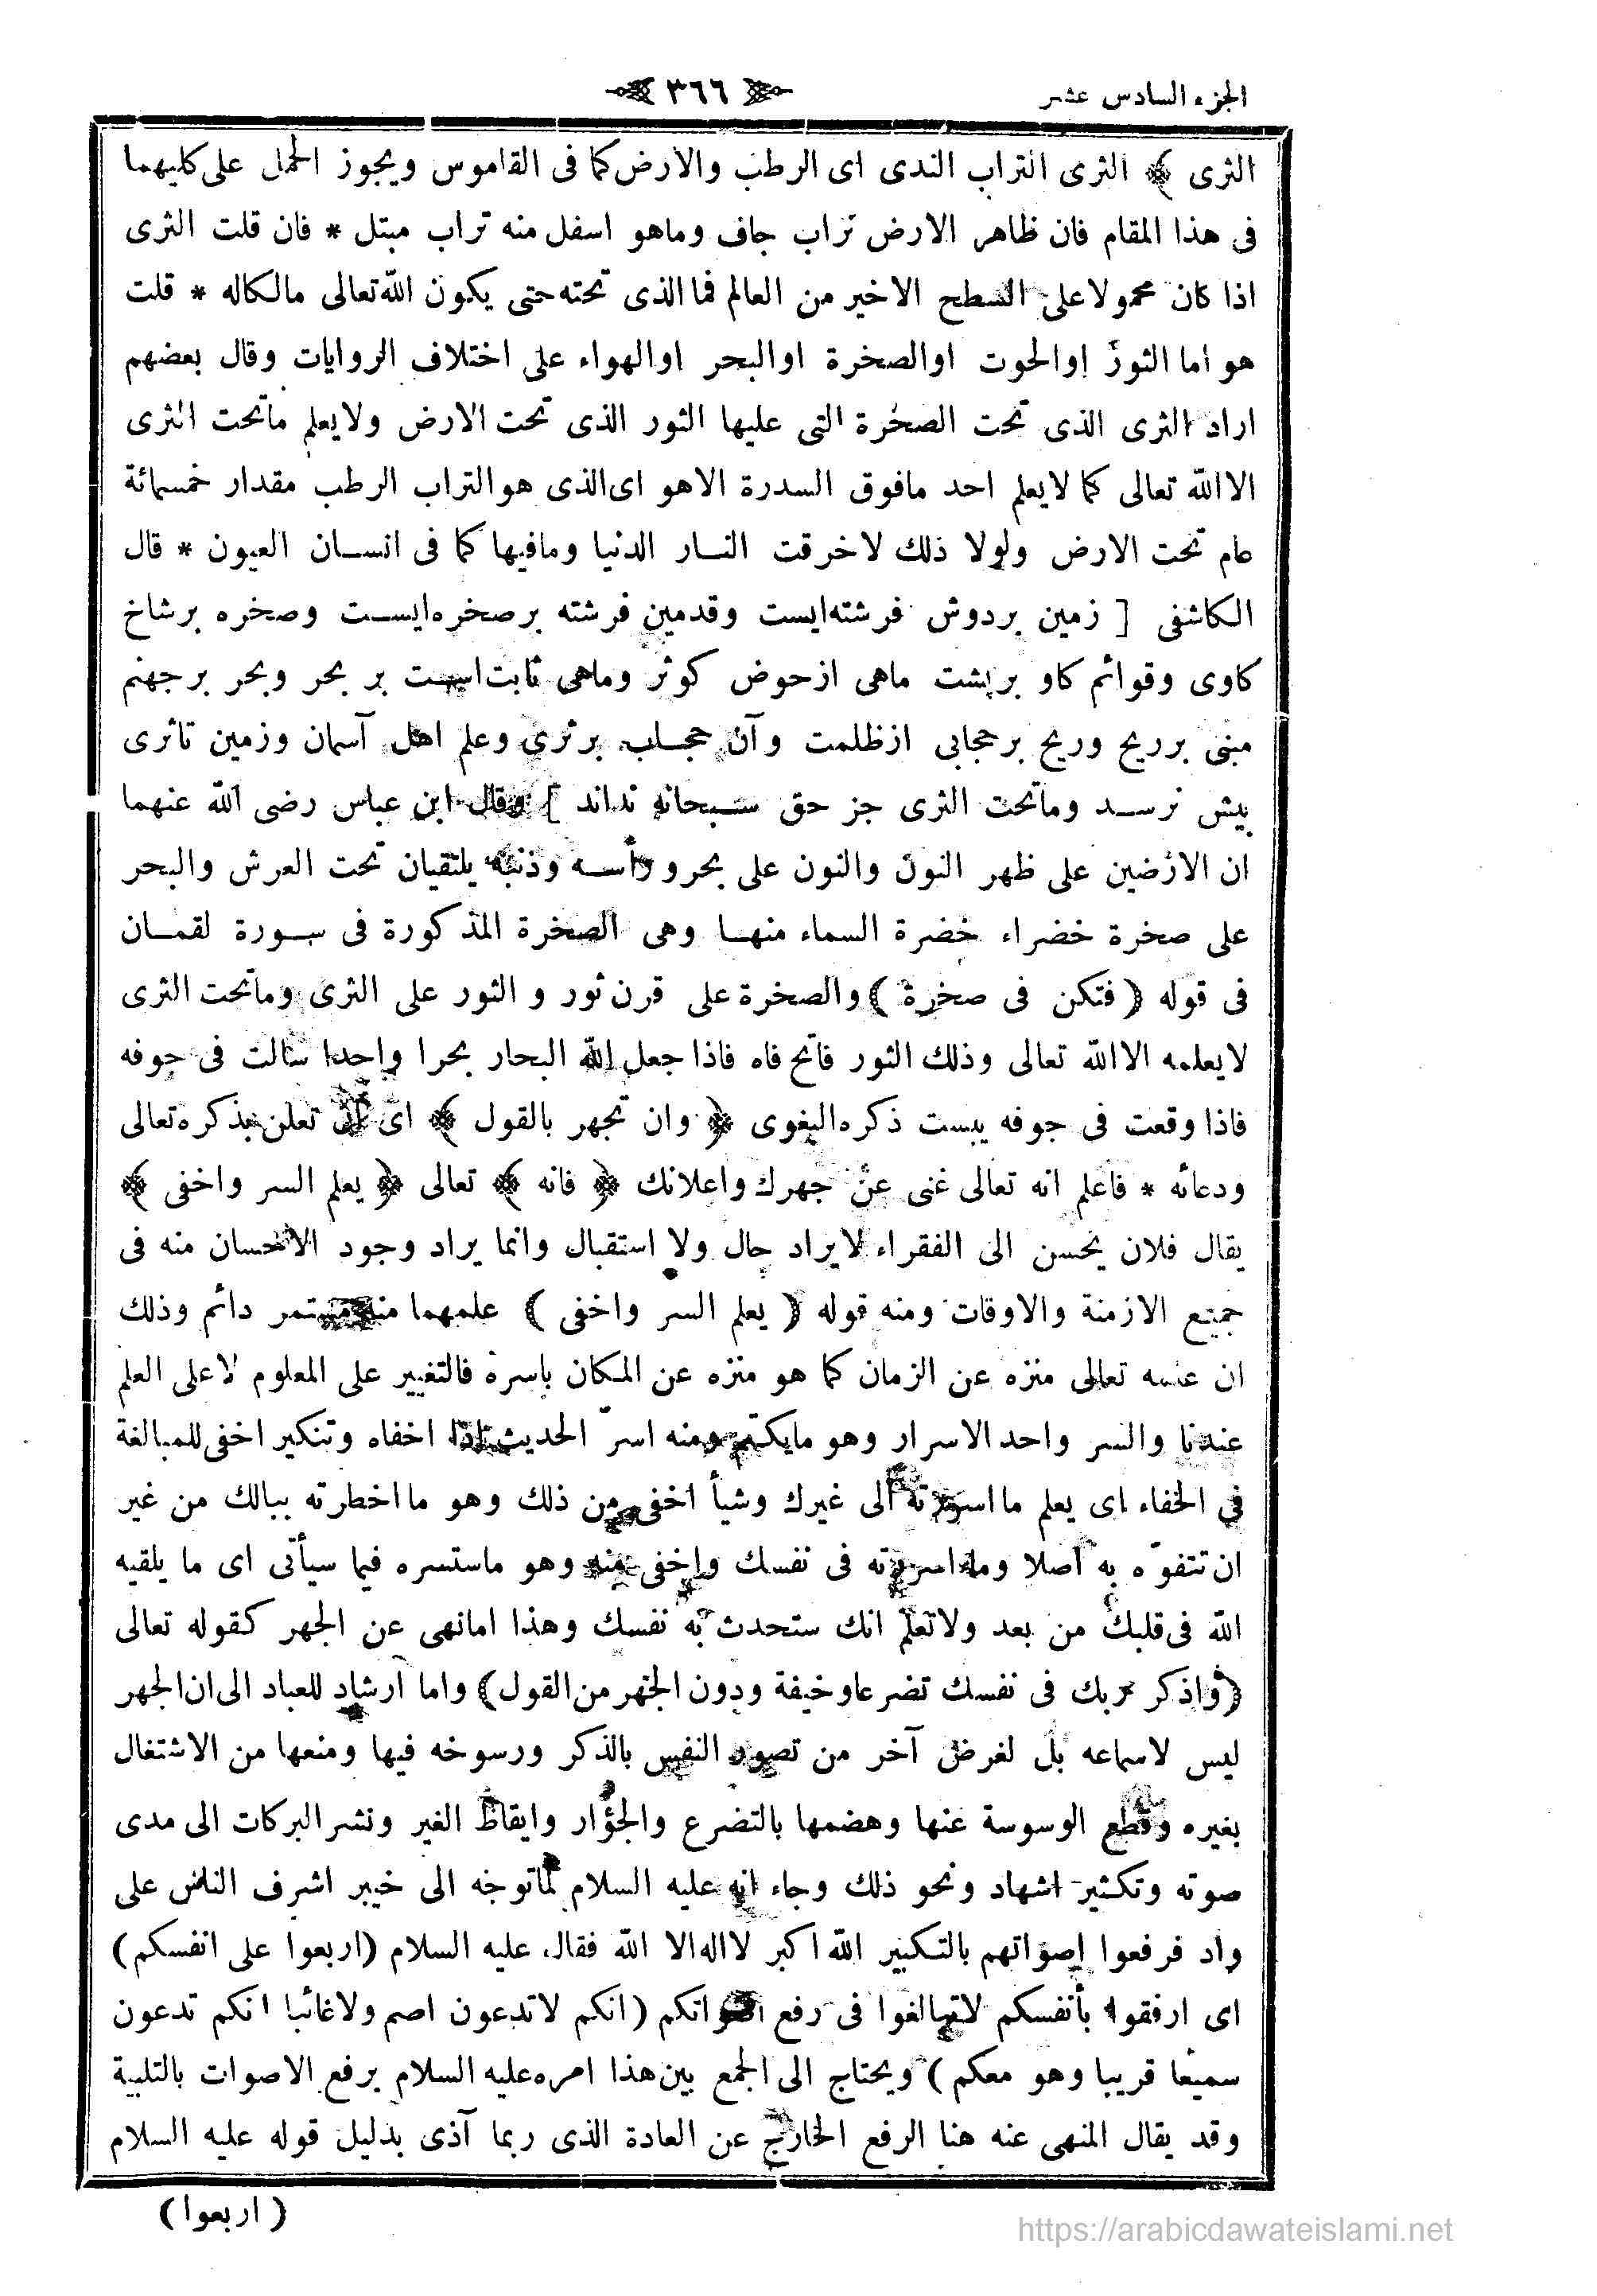 الجزء السادس عشر
٣٦٦
الثرى ﴾ الثرى التراب الندى اى الرطب والارض كما فى القاموس ويجوز الحمل على كليهما
فى هذا المقام فان ظاهر الارض تراب جاف وماهو اسفل منه تراب مبتل * فان قلت الثرى
اذا كان محمولا على السطح الاخير من العالم فما الذى تحته حتى يكون الله تعالى مالكاله * قلت
هو اما الثور اوالحوت اوالصخرة اوالبحر اوالهواء على اختلاف الروايات وقال بعضهم
اراد الثرى الذى تحت الصخرة التى عليها الثور الذى تحت الارض ولايعلم ماتحت الثرى
الاالله تعالى كما لايعلم احد مافوق السدرة الاهو اى الذى هو التراب الرطب مقدار خمسمائة
عام تحت الارض ولولا ذلك لاحرقت النار الدنيا ومافيها كما فى انسان العيون * قال
الكاشفى [ زمين بردوش فرشته ايست وقدمين فرشته برصخره ايست وصخره برشاخ
كاوى وقوائم كاو بربشت ماهى ازحوض كوثر وماهى ثابت است بر بحر وبحر برجهنم
مبنى برريح وريح برحجابى ازظلمت وآن حجاب برثرى وعلم اهل آسمان وزمين تاثرى
بيش نرسد وماتحت الثرى جز حق سبحانه نداند ] وقال ابن عباس رضى الله عنهما
ان الارضين على ظهر النون والنون على بحر ورأسه وذنبه يلتقيان تحت العرش والبحر
على صخرة خضراء خضرة السماء منها وهى الصخرة المذكورة فى سورة لقمان
فى قوله ( فتكن فى صخرة ) والصخرة على قرن ثور و الثور على الثرى وماتحت الثرى
لايعلمه الاالله تعالى وذلك الثور فاتح فاه فاذا جعل الله البحار بحرا واحدا سالت فى جوفه
فاذا وقعت فى جوفه يبست ذكره البغوى ﴿ وان تجهر بالقول ﴾ اى ان تعلن بذكره تعالى
ودعائه * فاعلم انه تعالى غنى عن جهرك واعلانك ﴿ فانه ﴾ تعالى ﴿ يعلم السر واخفى ﴾
يقال فلان يحسن الى الفقراء لايراد حال ولا استقبال وانما يراد وجود الاحسان منه فى
جميع الازمنة والاوقات ومنه قوله ( يعلم السر واخفى ) علمهما منه مستمر دائم وذلك
ان علمه تعالى منزه عن الزمان كما هو منزه عن المكان باسره فالتغيير على المعلوم لاعلى العلم
عندنا والسر واحد الاسرار وهو مايكتم ومنه اسرّ الحديث اذا اخفاه وتنكير اخفى للمبالغة
فى الخفاء اى يعلم ما اسررته الى غيرك وشيأ اخفى من ذلك وهو ما اخطرته ببالك من غير
ان تتفوّه به اصلا وما اسررته فى نفسك واخفى منه وهو ماستسره فيما سيأتى اى ما يلقيه
الله فى قلبك من بعد ولاتعلم انك ستحدث به نفسك وهذا امانهى عن الجهر كقوله تعالى
( واذكر ربك فى نفسك تضرعا وخيفة ودون الجهر من القول ) واما ارشاد للعباد الى ان الجهر
ليس لاسماعه بل لغرض آخر من تصور النفس بالذكر ورسوخه فيها ومنعها من الاشتغال
بغيره وقطع الوسوسة عنها وهضمها بالتضرع والجؤار وايقاظ الغير ونشر البركات الى مدى
صوته وتكثير اشهاد ونحو ذلك وجاء انه عليه السلام لما توجه الى خيبر اشرف الناس على
واد فرفعوا اصواتهم بالتكبير الله اكبر لااله الا الله فقال عليه السلام (اربعوا على انفسكم)
اى ارفقوا بأنفسكم لاتبالغوا فى رفع اصواتكم (انكم لاتدعون اصم ولاغائبا انكم تدعون
سميعا قريبا وهو معكم ) ويحتاج الى الجمع بين هذا امره عليه السلام برفع الاصوات بالتلبية
وقد يقال المنهى عنه هنا الرفع الخارج عن العادة الذى ربما آذى بدليل قوله عليه السلام
( اربعوا )
https://arabicdawateislami.net